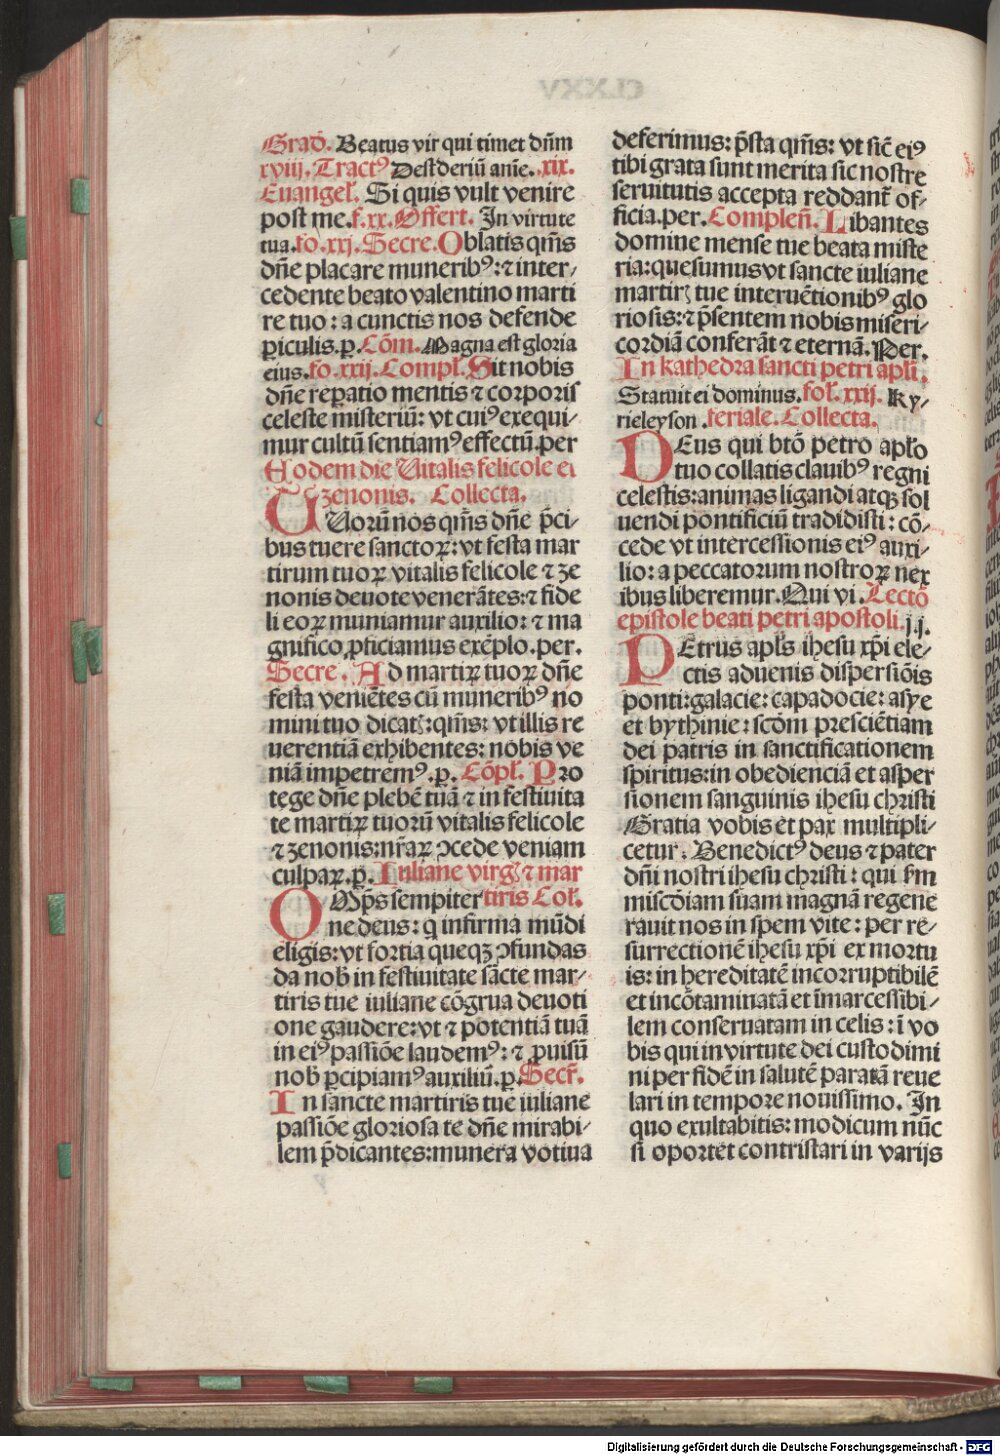 Grad̄. Beatus vir qui timet dn̄m
xviij. Tractꝰ Desideriū anīe. xix.
Euangeł. Si quis vult venire
post me. f. xx. Offert. In virtute
tua. fo. xxj. Secre. Oblatis qm̄s
dn̄e placare muneribꝰ: ⁊ inter/
cedente beato valentino marti
re tuo: a cunctis nos defende
ꝑiculis. ꝑ. Cōm. Magna est gloria
eius. fo. xxij. Compł. Sit nobis
dn̄e reꝑatio mentis ⁊ corporis
celeste misteriū: vt cuiꝰ exequi/
mur cultū sentiamꝰ effectū. per
Eodem die Uitalis felicole et
zenonis. Collecta.
TUorū nos qm̄s dn̄e p̄ci/
bus tuere sanctoꝝ: vt festa mar
tirum tuoꝝ vitalis felicole ⁊ ze
nonis deuote venerātes: ⁊ fide
li eoꝝ muniamur auxilio: ⁊ ma
gnifico ꝓficiamus exēplo. per.
Secre. Ad martiꝝ tuoꝝ dn̄e
festa veniētes cū muneribꝰ no
mini tuo dicatꝭ: qm̄s: vt illis re
uerentiā exhibentes: nobis ve
niā impetremꝰ. ꝑ. Cōpł. Pro
tege dn̄e plebē tuā ⁊ in festiuita
te martiꝝ tuorū vitalis felicole
⁊ zenonis: nr̄aꝝ ꝯcede veniam
culpaꝝ. ꝑ. Iuliane virgꝭ ⁊ mar
OMp̄s sempiter tiris Coł.
ne deus: q̄ infirma mūdi
eligis: vt fortia queqꝫ ꝯfundas
da nob̄ in festiuitate sācte mar/
tiris tue iuliane cōgrua deuoti
one gaudere: vt ⁊ potentiā tuā
in eiꝰ passiōe laudemꝰ: ⁊ ꝓuisū
nob̄ ꝑcipiamꝰ auxiliū. ꝑ. Secr̄.
In sancte martiris tue iuliane
passiōe gloriosa te dn̄e mirabi/
lem p̄dicantes: munera votiua
deferimus: p̄sta qm̄s: vt sic̄ eiꝰ
tibi grata sunt merita sic nostre
seruitutis accepta reddant̄ of/
ficia. per. Complen̄. Libantes
domine mense tue beata miste
ria: quesumus vt sancte iuliane
martirꝭ tue interuētionibꝰ glo
riosis: ⁊ p̄sentem nobis miseri/
cordiā conferāt ⁊ eternā. Per.
In kathedra sancti petri apłi.
Statuit ei dominus. foł. xxij. Ky/
rieleyson. feriale. Collecta.
DEus qui btō petro apło
tuo collatis clauibꝰ regni
celestis: animas ligandi atqꝫ sol
uendi pontificiū tradidisti: cō/
cede vt intercessionis eiꝰ auxi/
lio: a peccatorum nostroꝝ nex
ibus liberemur. Qui vi. Lectō
epistole beati petri apostoli. j. j.
PEtrus apłs ihesu xp̄i ele/
ctis aduenis dispersiōis
ponti: galacie: capadocie: asye
et bythinie: scōm presciētiam
dei patris in sanctificationem
spiritus: in obedienciā et asper
sionem sanguinis ihesu christi
Gratia vobis et pax multipli/
cetur. Benedictꝰ deus ⁊ pater
dn̄i nostri ihesu christi: qui sm̄
miscōiam suam magnā regene
rauit nos in spem vite: per re/
surrectionē ihesu xp̄i ex mortu
is: in hereditatē incorruptibilē
et incōtaminatā et īmarcessibi/
lem conseruatam in celis: ī vo
bis qui in virtute dei custodimi
ni per fidē in salutē paratā reue
lari in tempore nouissimo. In
quo exultabitis: modicum nūc
si oportet contristari in varijs
Digitalisierung gefördert durch die Deutsche Forschungsgemeinschaft - DFG